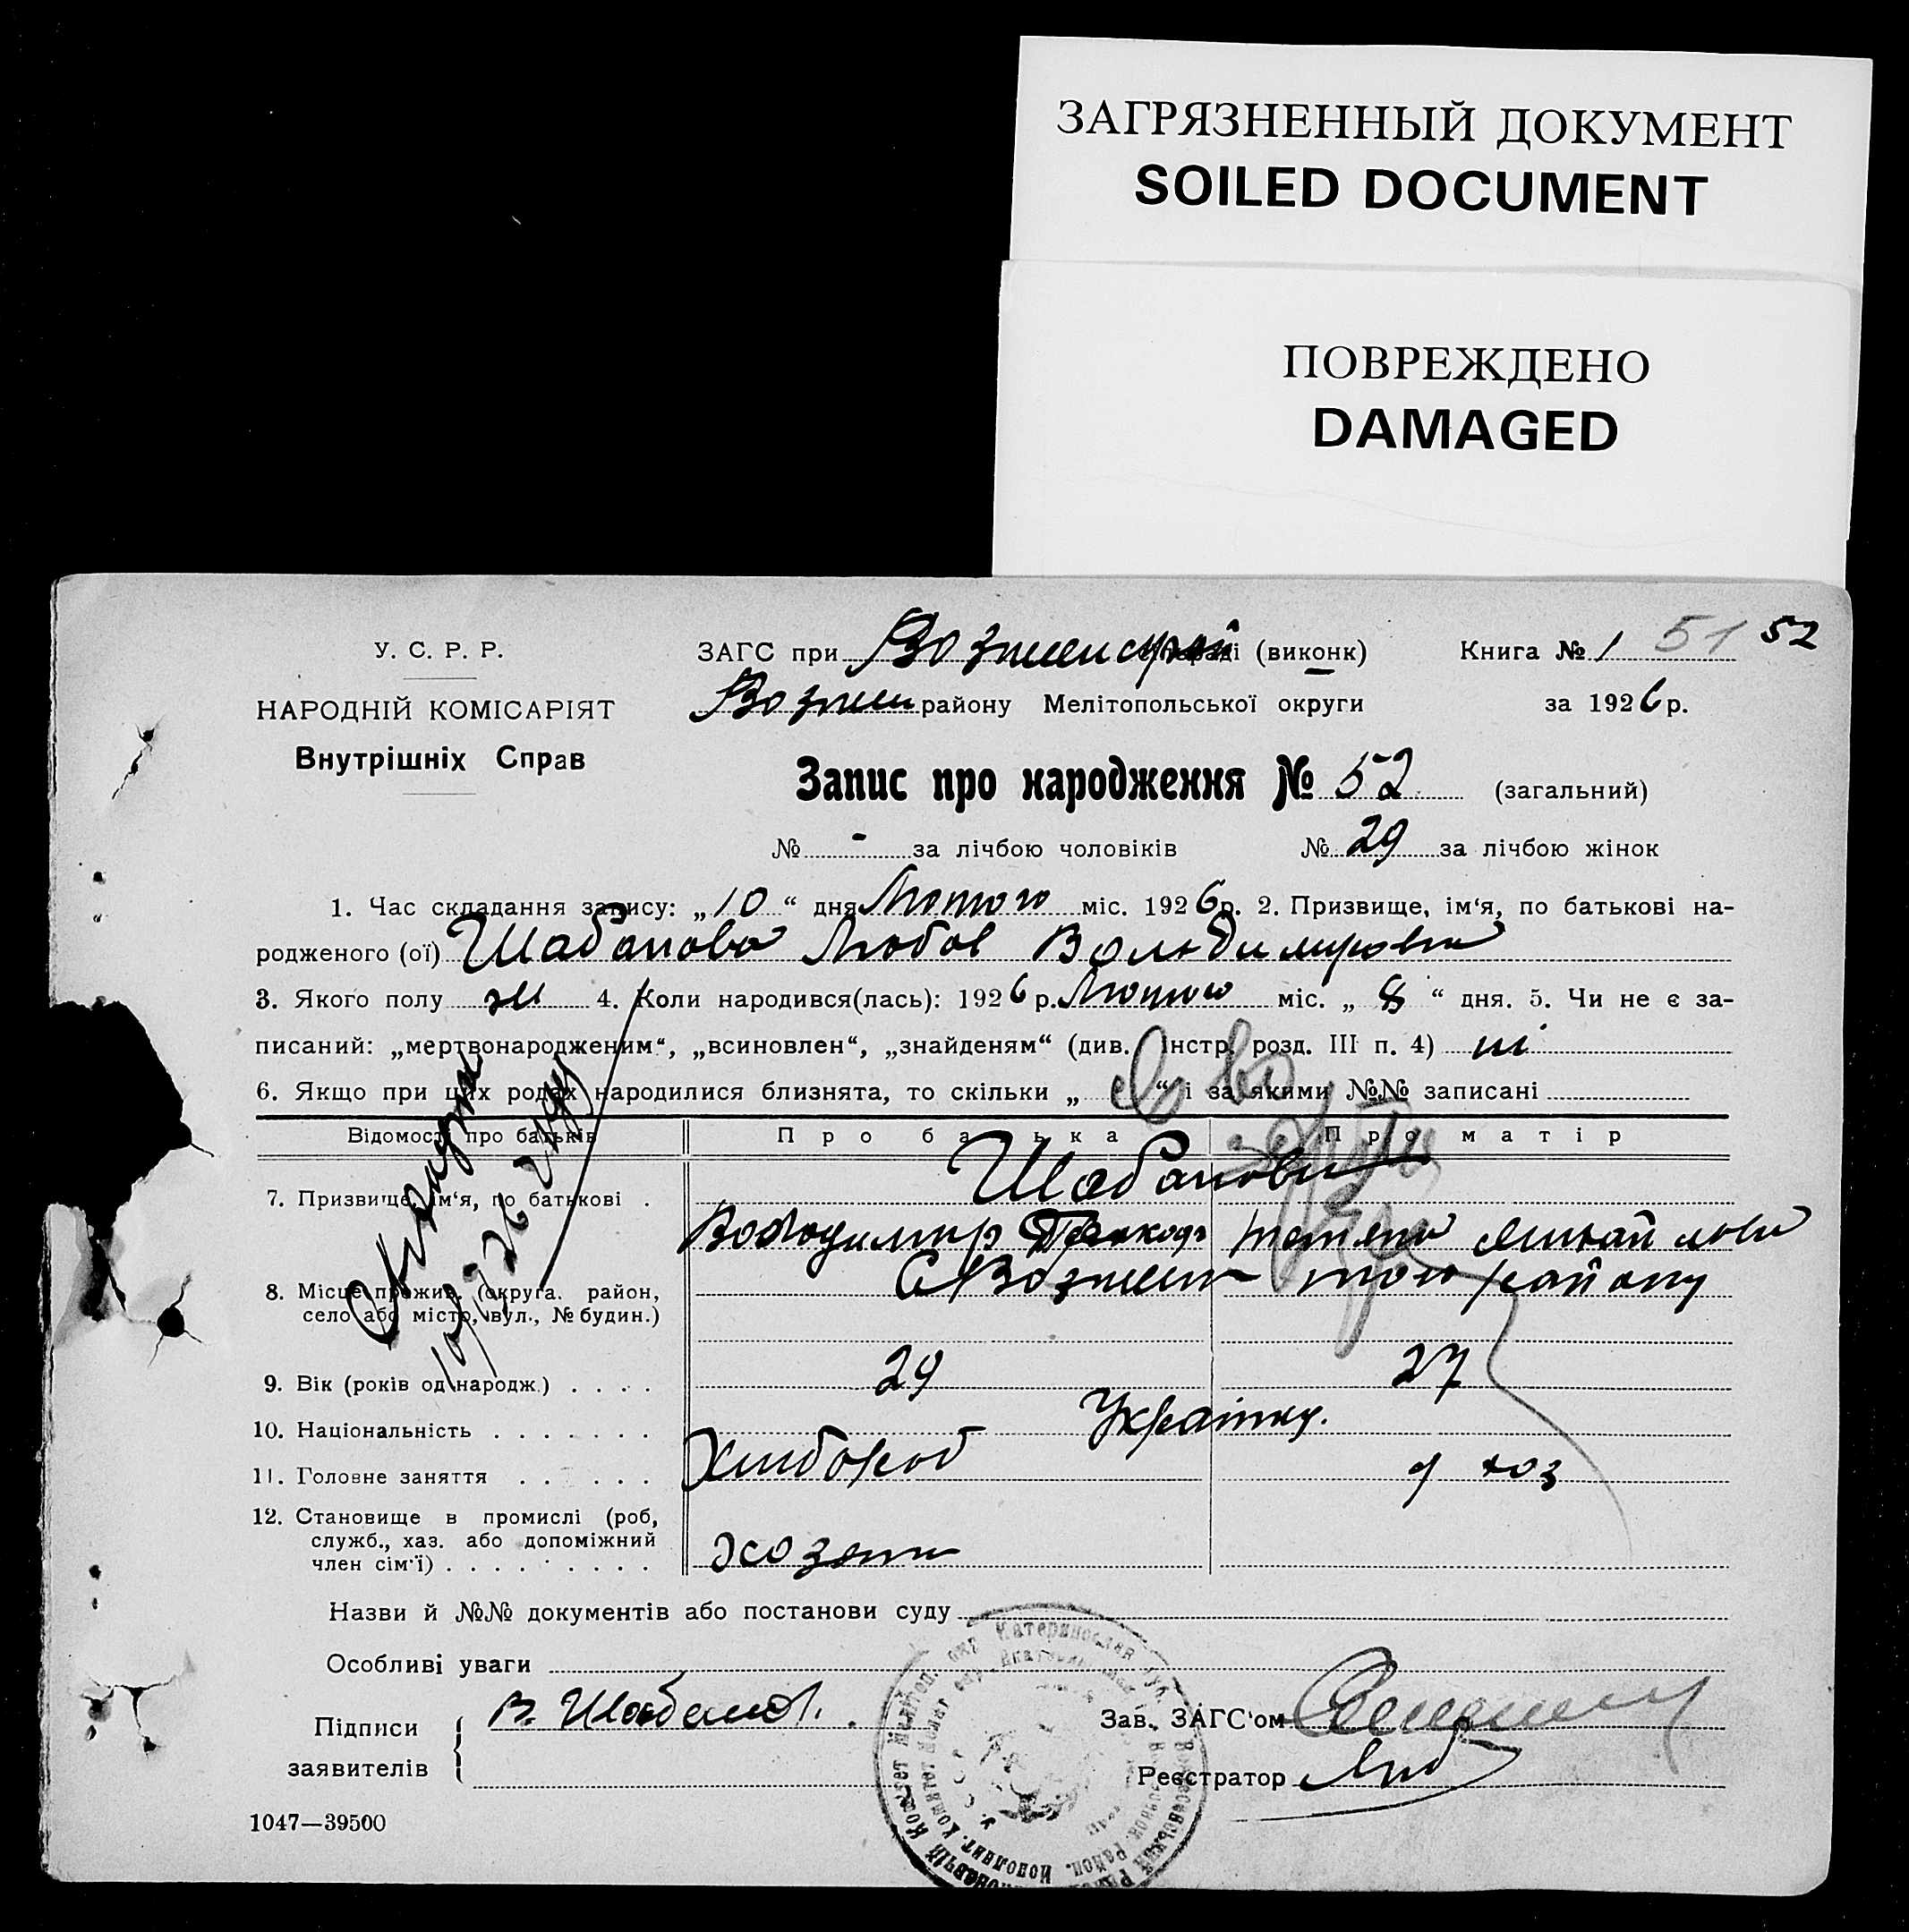 ЗАГРЯЗНЕННЫЙ ДОКУМЕНТ
SOILED DOCUMENT
ПОВРЕЖДЕНО
DAMAGED
У. С. Р. Р.
НАРОДНІЙ КОМІСАРІЯТ
Внутрішніх Справ
ЗАГС при (виконк) Книга № 1 51 52
Вознес району Мелітопольської округи за 1926 р.
Запис про народження № 52 (загальний)
№ - за лічбою чоловіків № 29 за лічбою жінок
1. Час складання запису: „10“ дня Лютого міс. 1926 р. 2. Призвище, ім‘я, по батькові на-
родженого (ої) Шабанова Любов Володимировна
3. Якого полу ж 4. Коли народився(лась): 1926 р. Лютого міс. „ 8 “ дня. 5. Чи не є за-
писаний: „мертвонародженим“, „всиновлен“, „знайденям“ (див. Інстр. розд. III п. 4) ні
6. Якщо при цих родах народилися близнята, то скільки „ “ і за якими №№ записані
Відомості про батьків Про батька Про матір
Шабанови
7. Призвище, ім‘я, по батькові .
Володимир Прокоф Татяна Михайлови
С Вознесен того району
8. Місце прожив. (округа. район,
село або місто, вул., № будин.)
9. Вік (років од народж.) . . . . 29 27
10. Національність . . . . . . . Українц.
11. Головне заняття . . . . . . Хлібороб д хоз
12. Становище в промислі (роб,
служб., хаз. або допоміжний
член сім‘ї) . . . . . . . . . хозяин
Назви й №№ документів або постанови суду
Особливі уваги
Підписи
заявителів
В. Шабанов.
Зав. ЗАГС‘ом
Реєстратор
1047—39500